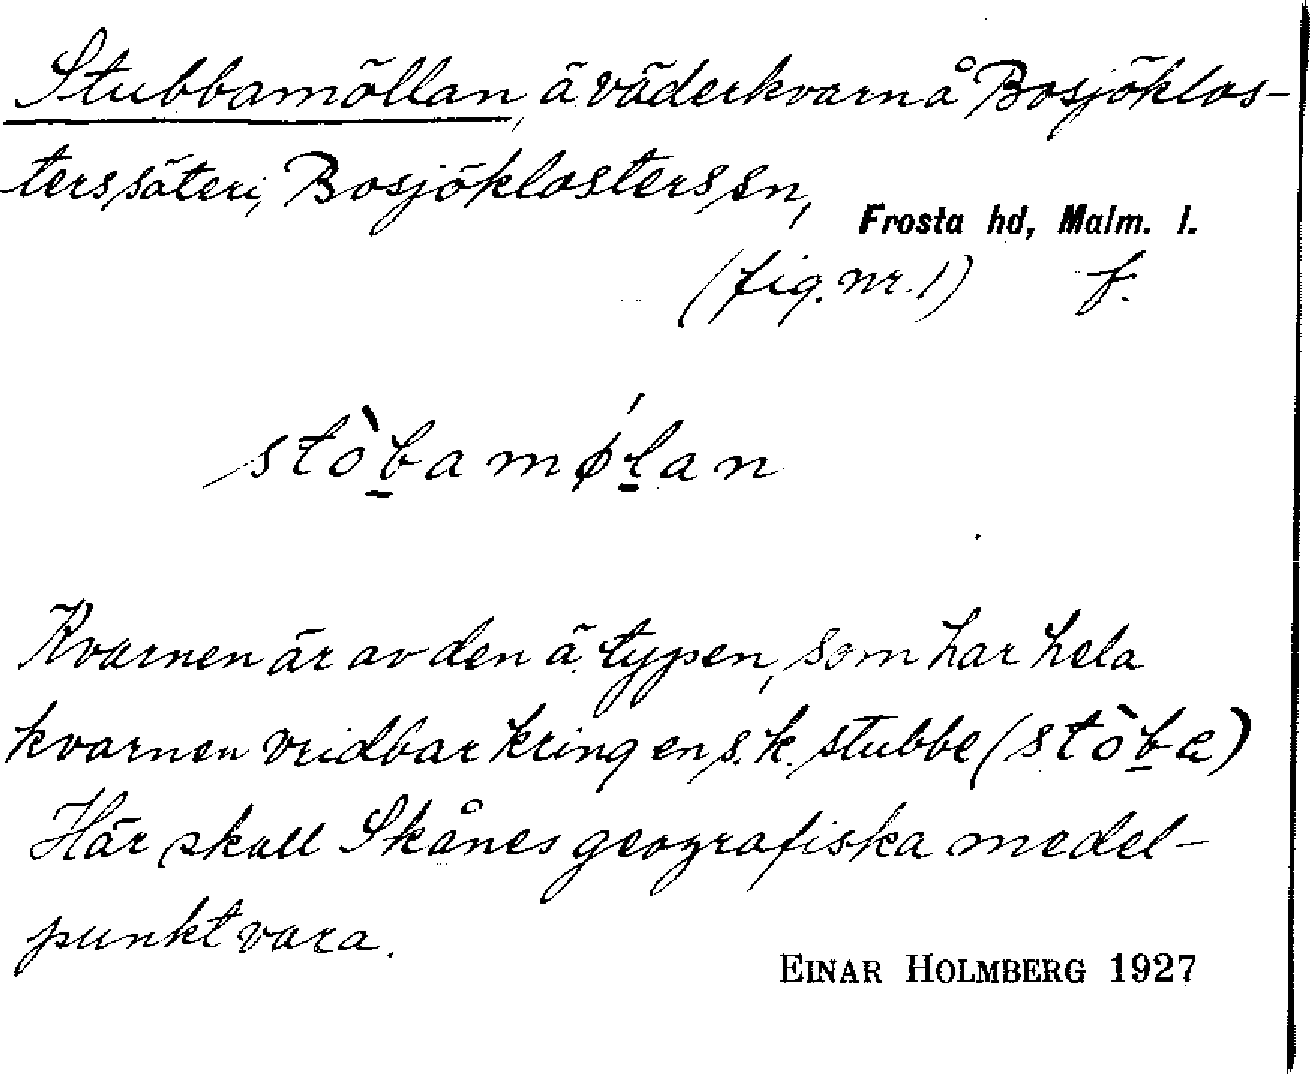 Stubbamöllan, ä väderkvarn å Bosjöklos-
ters säteri, Bosjöklosters sn,
Frosta hd, Malm. l.
(fig. nr. 1) f.
stòbamǿlan
Kvarnen är av den ä. typen, som har hela
kvarnen vridbar kring en s.k. stubbe (stòba)
Här skall Skånes geografiska medel-
punkt vara.
EINAR HOLMBERG 1927